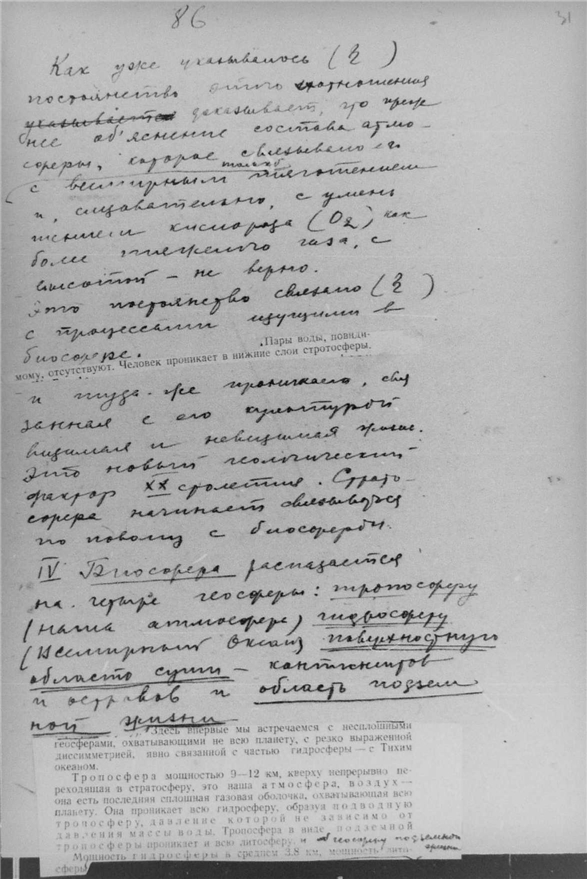 86
31
Как уже указывалось (§ )
постоянство этого соотношения
указывает доказывает, что преж
нее об'яснение состава атмо-
сферы, которое связывало его
только
с всемирным тяготением
и, следовательно, с умень
шением кислорода (O2) как
более тяжелого газа, с
высотой — не верно.
Это постоянство связано (§ )
с процессами идущими в
биосфере.
Пары воды, повиди-
мому, отсутствуют. Человек проникает в нижние слои стротосферы,
и туда-же проникает, свя
занная с его культурой
видимая и невидимая жизнь.
Это новый геологический
фактор XX столетия. Страто-
сфера начинает связываться
по новому с биосферой.
IV Биосфера распадается
на четыре геосферы: тропосферу
(наша атмосфера) гидросферу
(Всемирный Океан) поверхностную
область суши — континентов
и островов и область подзем
ной жизни
Здесь впервые мы встречаемся с несплошными
геосферами, охватывающими не всю планету, с резко выраженной
диссимметрией, явно связанной с частью гидросферы — с Тихим
океаном.
Тропосфера мощностью 9—12 км, кверху непрерывно пе-
реходящая в стратосферу, это наша атмосфера, воздух —
она есть последняя сплошная газовая оболочка, охватывающая всю
планету. Она проникает всю гидросферу, образуя подводную
тропосферу, давление которой не зависимо от
давления массы воды. Тропосфера в виде подземной
тропосферы проникает и всю литосферу, и геосферу подземной
жизни
Мощность гидросферы в среднем 3.8 км, мощность лито-
сферы